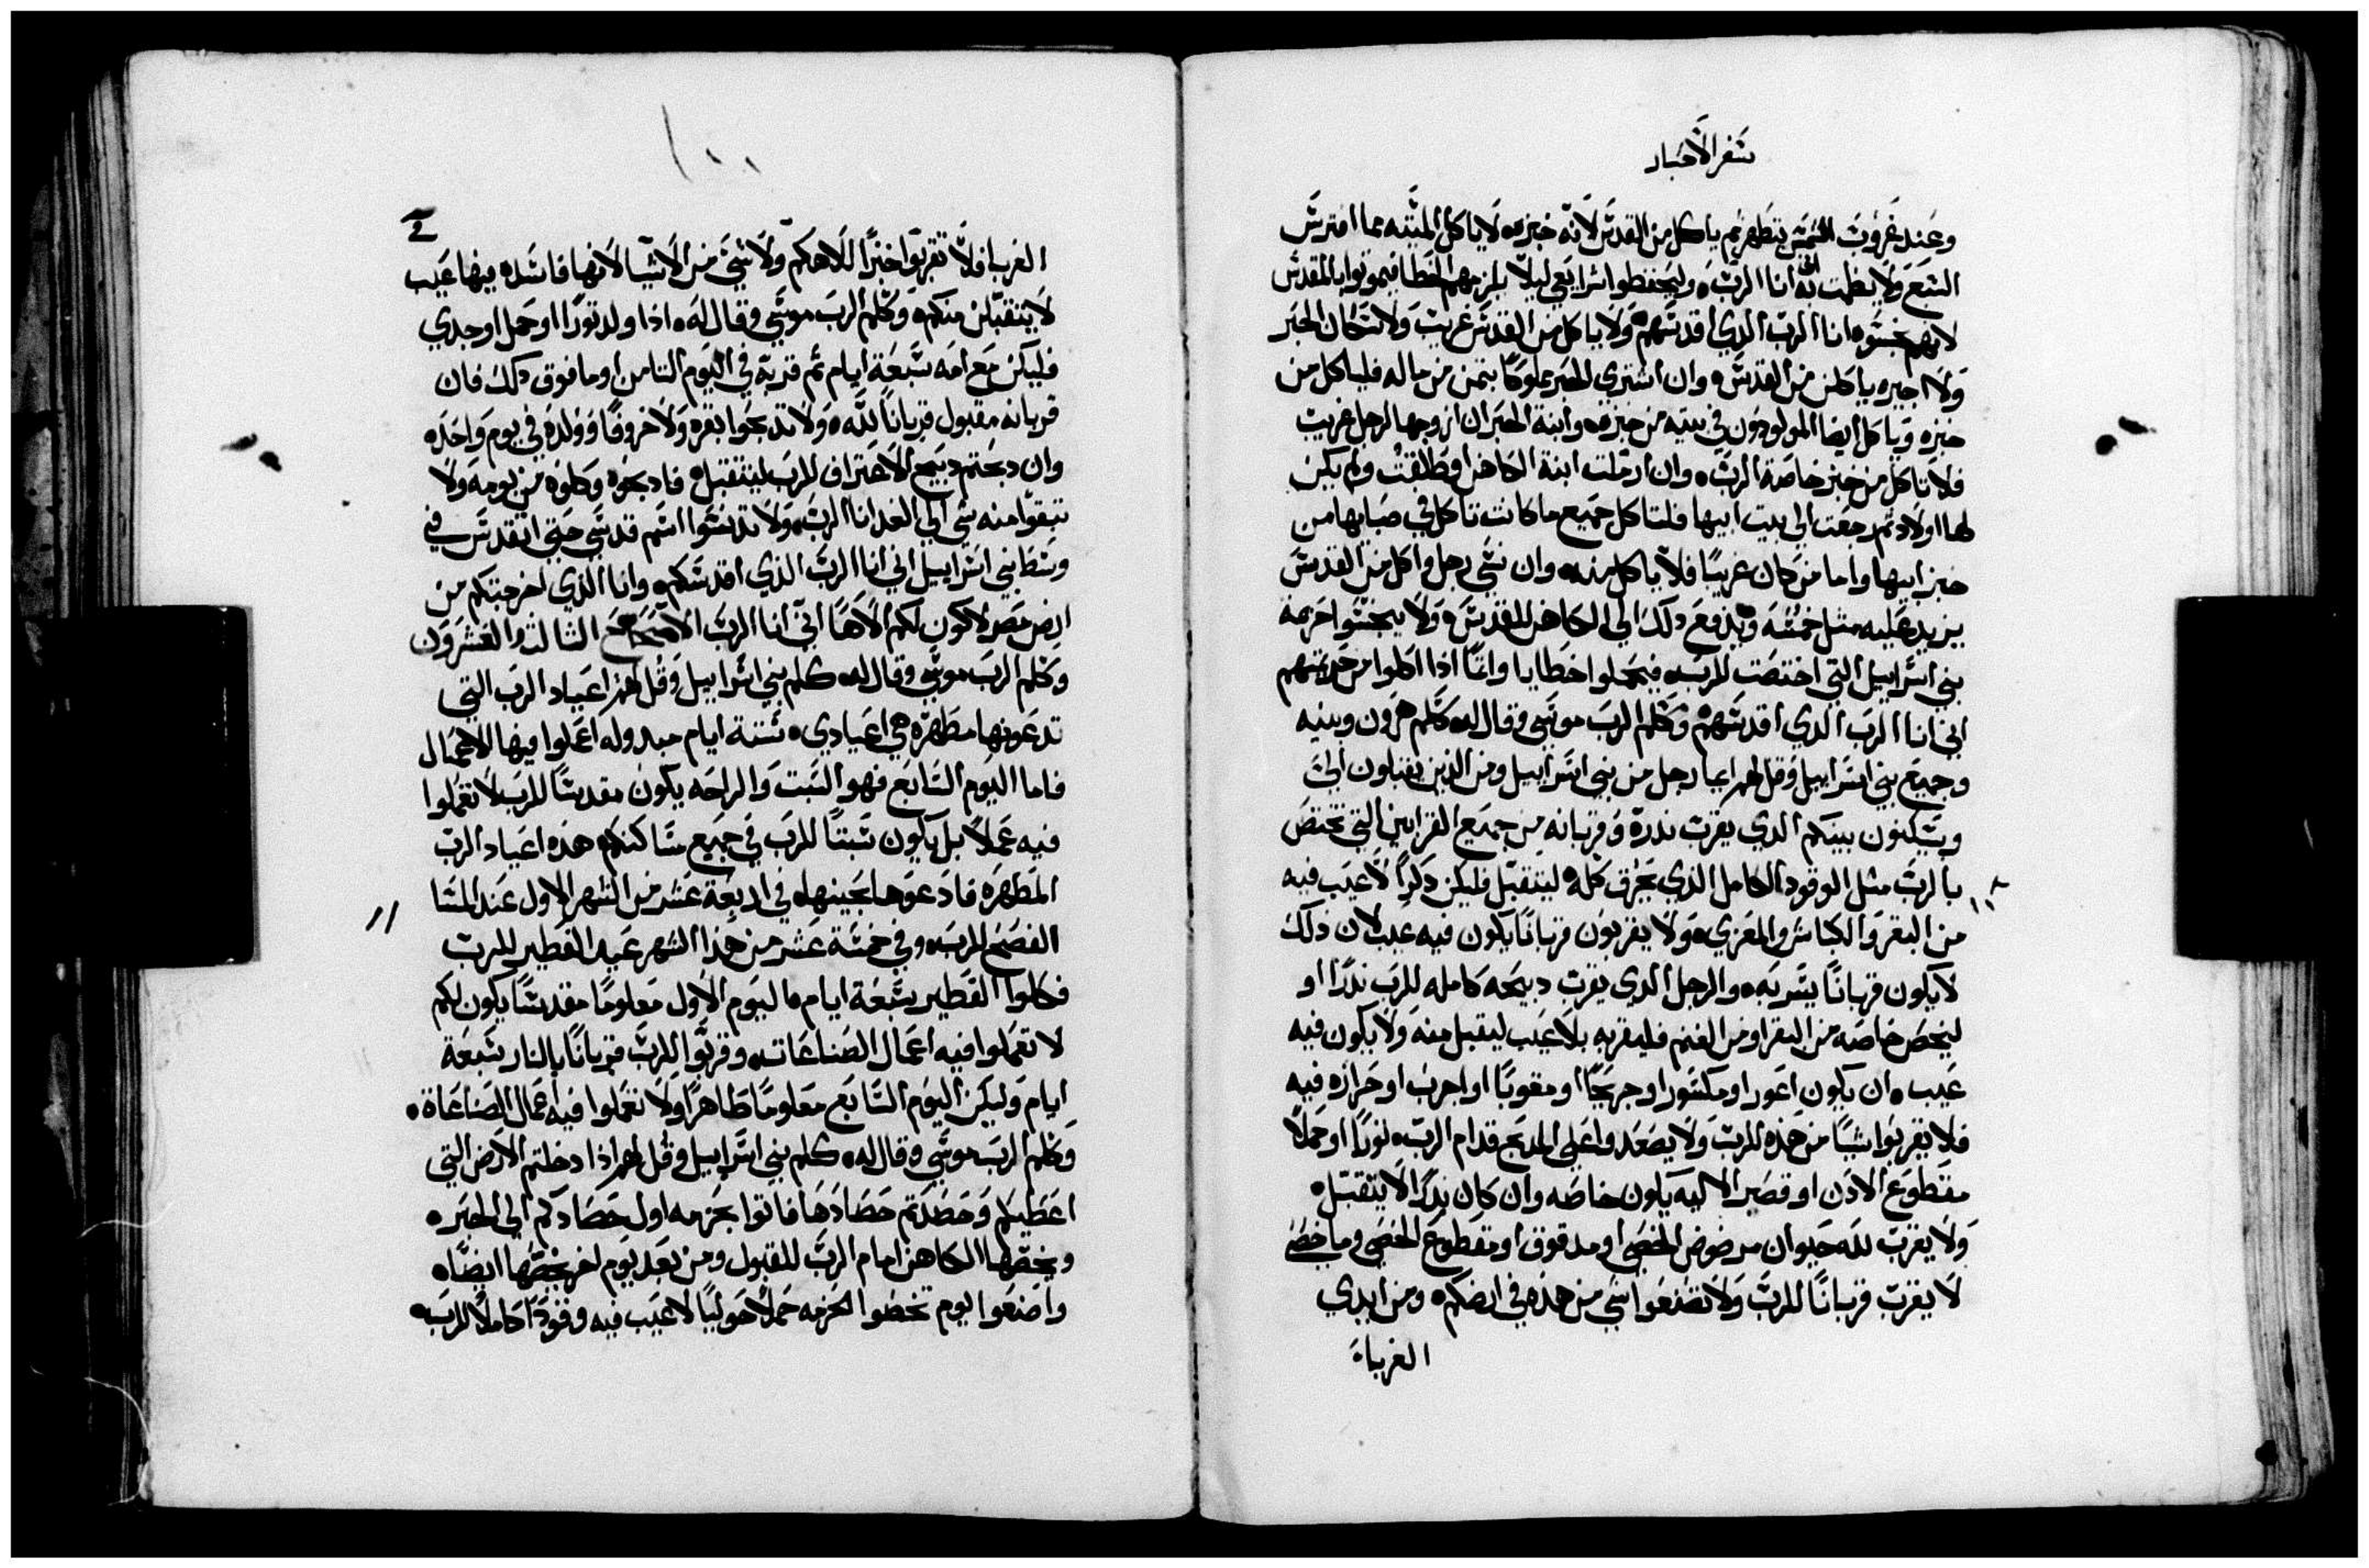 سفر الاحبار
وعند غروب الشمس يتطهر ثم ياكل من القدس لانه خبزه لا ياكل الميته مما افترس
السبع ولا انا الرب وليحفظوا شرايعي ليلا يلزمهم الخطا فيموتوا بالمقدس
لانهم نجسوه انا الرب الدي اقدسهم ولا ياكل من القدس غريب ولا سكان الحبر
ولا اجيره ياكلن من القدس وان اشتري الحبر مملوكا بتمن من ماله فلياكل من
خبزه وياكل ايضا المولودون في بيته من خبزه وابنة الحبر ان ازوجها لرجل غريب
فلا تاكل من خبز خاصة الرب وان ارملت ابنة الكاهن او طلقت ولم يكن
لها اولاد تم رجعت الي بيت ابيها فلتاكل جميع ما كانت تاكل في صباها من
خبز ابيها واما من كان غريبا فلا ياكل منه وان نسي رجل واكل من القدس
يزيد عليه مثل خمسه ويدفع دلك الي الكاهن للقدس ولا ينجسوا احرمة
بني اسراييل التي اختصت للرب فيحملوا خطايا واتما ادا اكلوا من حرمتهم
اني انا الرب الدي اقدسهم وكلم الرب موسي وقال له كلم هرون وبنيه
وجميع بني اسراييل وقل لهم ايما رجل من بني اسراييل ومن الدين يقبلون الي
ويسكنون بينكم الدي يقرب ندرة وقربانه من جميع القرابين التي تختص
بالرب مثل الوقود الكامل الدي يحرق كله ليتقبل فليكن دكرا لا عيب فيه
من البقر والكباش والمعزي ولا يقربون قربانا يكون فيه عيب لان دلك
لا يكون قربانا يسر به والرجل الدي يقرب دبيحه كامله للرب ندرا او
ليخص خاصه من البقر او من الغنم فليقربه بلا عيب ليقبل منه ولا يكون فيه
عيب ان يكون اعور او مكسور او جريحا او مقوبا او اجرب او حزازه فيه
فلا يقربوا شيا من هذه للرب ولا يصعدوا علي المدبح قدام الرب توراا او حملا
مقطوع الادن او قصير الاليه يكون خاصه وان كان ندرا لا يتقبل
ولا يقرب لله حيوان مرضوض الخصي او مدقوق او مقطوع الخصي وما خصي
لا يقرب قربانا للرب ولا تصنعوا شي من هذه في ارضكم ومن ايدي
الغرباء
الغربا فلا تقربوا خبزا لالاهكم ولا شي من الاشيا لانها فاسده فيها عيب
لا يتقبلن منكم وكلم الرب موسي وقال له ادا ولد تورا او حمل او جدي
فليكن مع امه سبعة ايام تم قدبه في اليوم التامن او ما فوق دلك فان
قربانه مقبول قربانا لله ولا تدبحوا بقره ولا خروفا وولده في يوم واحد
وان دبحتم دبيح الاعتراف للرب ليتقبل فادبحوه وكلوه من يومه ولا
تبقوا منه شي الي الغد انا الرب ولا تدنسوا اسم قدسي حتي اتقدس في
وسط بني اسراييل اني انا الرب الدي اقدسكم وانا الذي اخرجتكم من
ارض مصر لاكون لكم الاها اني انا الرب الاصحاح التالت والعشرون
وكلم الرب موسي وقال له كلم بني اسراييل وقل لهم اعياد الرب التي
تدعونها مطهره هي اعيادي ستة ايام اعملوا فيها الاعمال
فاما اليوم السابع فهو السبت والراحه يكون مقدسا للرب لا تعملوا
فيه عملا بل يكون سبتا للرب في جميع مساكنكم هذه اعياد الرب
المطهره فادعوها بحينها في اربعة عشر من الشهر الاول عند المسا
الفصح للرب وفي خمسة عشر من هذا الشهر عيد الفطير للرب
فكلوا الفطير سبعة ايام اليوم الاول معلوما مقدسا يكون لكم
لا تعملوا فيه اعمال الصناعات وقربوا للرب قربانا بالنار سبعة
ايام وليكن اليوم السابع معلوما طاهرا ولا تعملوا فيه اعمال الصناعاة
وكلم الرب موسي وقال له كلم بني اسراييل وقل لهم اذا دخلتم الارض التي
اعطيكم وحصدتم حصادها فاتوا بحزمه اول حصادكم الي الحبر
ويخصها الكاهن امام الرب للقبول ومن بعد يوم اخر يخصها ايضا
واصنعوا يوم تخصوا الحزمه حملا حوليا لا عيب فيه وقودا كاملا للرب